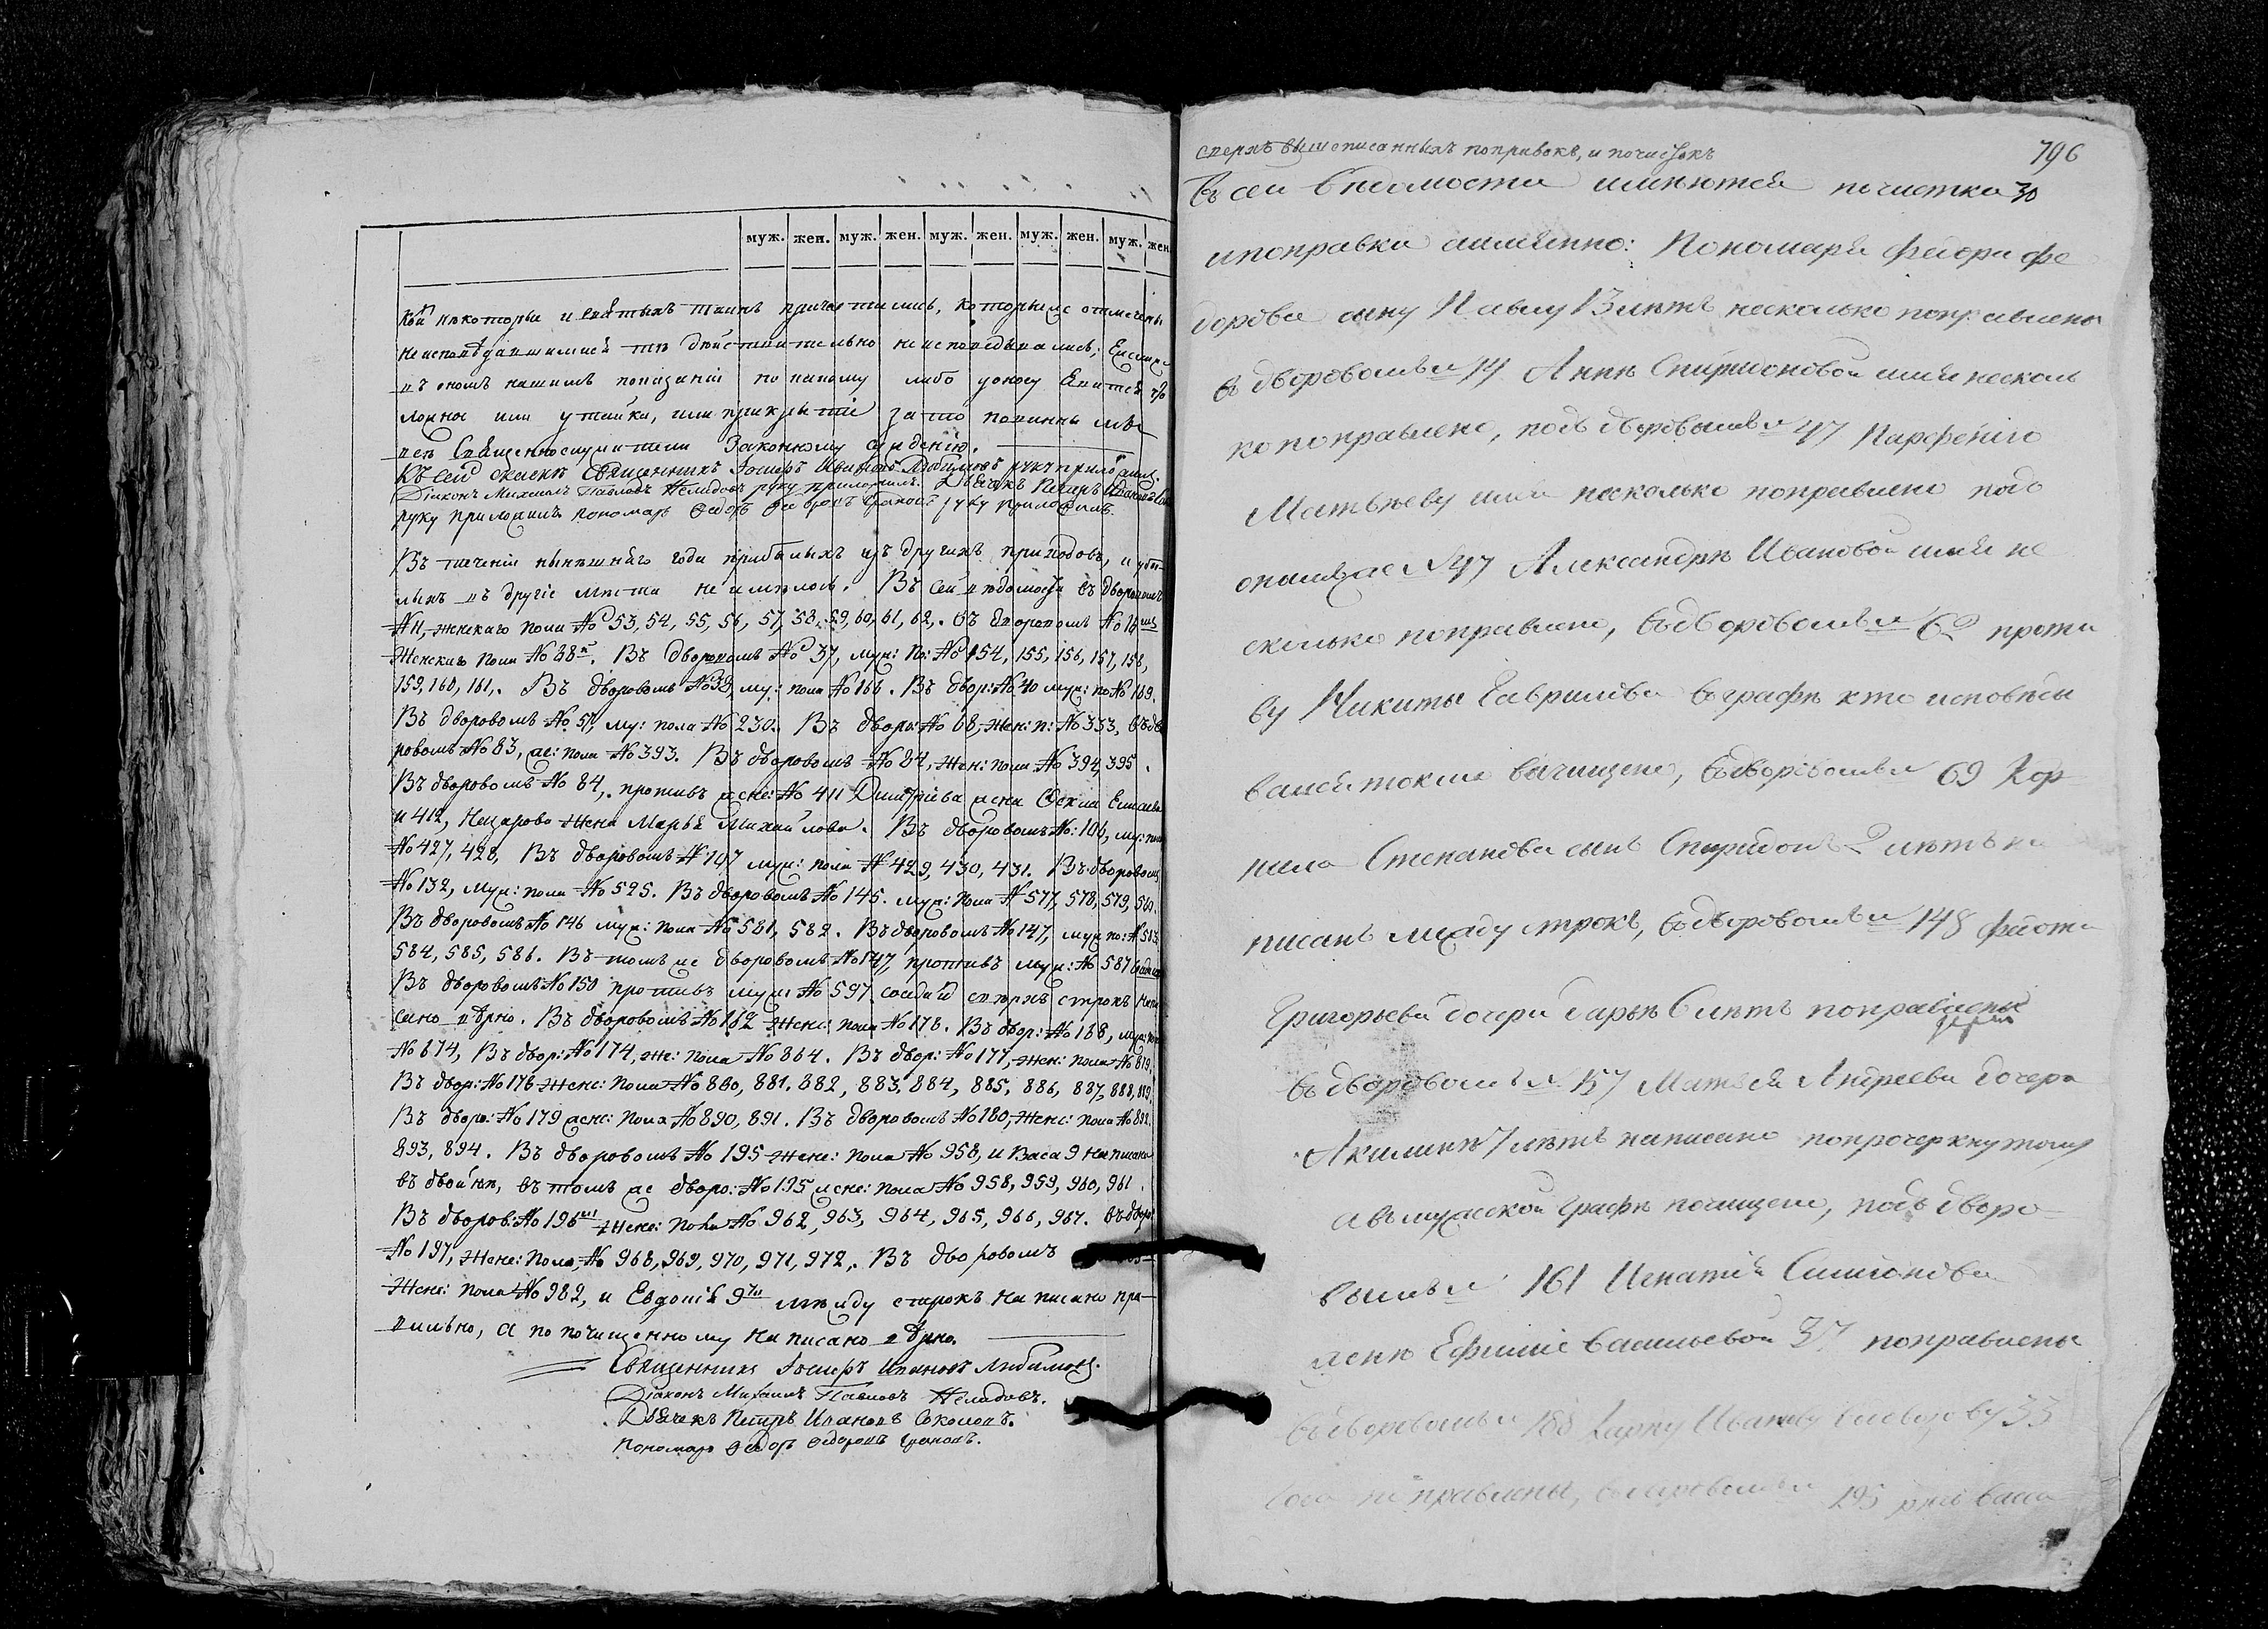 муж. жен. муж. жен. муж. жен. муж. жен. муж. жен.
кои нѣкоторые и святыхъ таинъ причастились, которыеже отмечены
неисповѣдавшимися тѣ дѣйствительно неисповедывались; Ежели же
въ ономъ нашемъ показаніи по какому либо доносу явится
ложное или утайка, или прикрытіе за то повинны мы
Священнослужители Законному сужденію.
Къ сей скаскѣ Священникъ Иванъ Любимовъ руку приложилъ.
Діаконъ Михаилъ Павловъ Нелидовъ руку приложилъ. Дьячекъ Петръ Ивановъ
руку приложилъ пономарь Ѳедоръ Ѳедоровъ руку приложилъ.
Въ теченіи нынѣшняго года прибылыхъ изъ другихъ приходовъ, и убы-
лыхъ въ другіе мѣста не имѣлось. Въ сей вѣдомости въ дворовомъ
№ 11, женскаго пола № 53, 54, 55, 56, 57, 58, 59, 60, 61, 62,. въ дворовомъ
Женскаго пола № 38. Въ дворовомъ № 37, муж: по: № 154, 155, 156, 157, 158,
159, 160, 161,. Въ дворовомъ № 39 му: пола № 166. Въ двор: № 40 муж: по № 169.
Въ дворовомъ № 57, му: пола № 230. Въ дворо: № 68, жен: п: № 333, въ дво
ровомъ № 83, же: пола № 393. Въ дворовомъ № 84, жен: пола № 394, 395.
Въ дворовомъ № 84,. противъ жене: № 411 Дмитріева жена Ѳекла
и 412, Назарова жена Марья Михайлова. Въ дворовомъ №: 106, му: пола
№ 427, 428, Въ дворовомъ № 107 муж: пола № 429, 430, 431. Въ дворовомъ
№ 132, муж: пола № 525. Въ дворовомъ № 145. муж: пола № 577, 578, 579, 580.
Въ дворовомъ № 146 муж: пола № 581, 582. Въ дворовомъ № 147, муж по: № 583
584, 585, 586. Въ томъ же дворовомъ № 147, противъ муж: № 587
Въ дворовомъ № 150 противъ муж: № 597 сверхъ строкъ напи
сано вѣрно. Въ дворовомъ № 162 жене: пола № 178. Въ двор: № 168, муж: пол
№ 674, Въ двор: № 174, же: пола № 864. Въ двор: № 177, жен: пола № 879.
Въ двор: № 178 жене: пола № 880, 881, 882, 883, 884, 885, 886, 887, 888, 889.
Въ дворо: № 179 жене: пола № 890, 891. Въ дворовомъ № 180, жене: пола № 892,
893, 894. Въ дворовомъ № 195 жене: пола № 958, и Васа 9 написана
въ двойнѣ, въ томъ же дворо: № 195 жене: пола № 958, 959, 960, 961.
Въ дворов: № 196 жене: пола № 962, 963, 964, 965, 966, 967. въ двор:
№ 197, жене: пола, № 968, 969, 970, 971, 972,. Въ дворовомъ
жене: пола № 982, и Евдокія 9 между строкъ написано пра-
вильно, а по почищенному написано вѣрно.
Священникъ Ивановъ Любимовъ.
Діаконъ Михаилъ Павловъ Нелидовъ.
Дьячекъ Петръ Ивановъ Соколовъ.
Пономарь Ѳедоръ Ѳедоровъ
сверхъ вышеписанныхъ поправокъ, и почистокъ
796
Въ сей вѣдомости имѣются почистки 30
и поправки а именно: Пономаря Федора Фе
дорова сыну Павлу 13 лѣтъ несколько поправлены
въ дворовомъ № 14 Аннѣ Спиридоновой имя несколь
ко поправлено, подъ дворовымъ № 47 Парфенію
Матвѣеву имя несколько поправлено подъ
онымже № 47 Александрѣ Ивановой имя не
сколько поправлено, въ дворовомъ № 62 проти
ву Никиты Гаврилова въ графѣ кто исповѣды
вался токмо вычищено, въ дворовомъ № 69 Кор
нила Степанова сынъ Спиридонъ 2 лѣтъ на
писанъ между строкъ, въ дворовомъ № 148 Федота
Григорьева дочери Дарьи 6 лѣтъ поправлены
въ дворовомъ № 157 Матвея Андреева дочерѣ
Акилинѣ 7 лѣтъ написано попрочеркнутому
а въ мужеской графѣ почищено, подъ дворо
вымъ № 161 Игнатія Симионова
женѣ Ефиміѣ Васильевой 37 поправлены
въ дворовомъ № 188 Карпу Иванову 35
поправлены, въ дворовомъ № 195 Васса